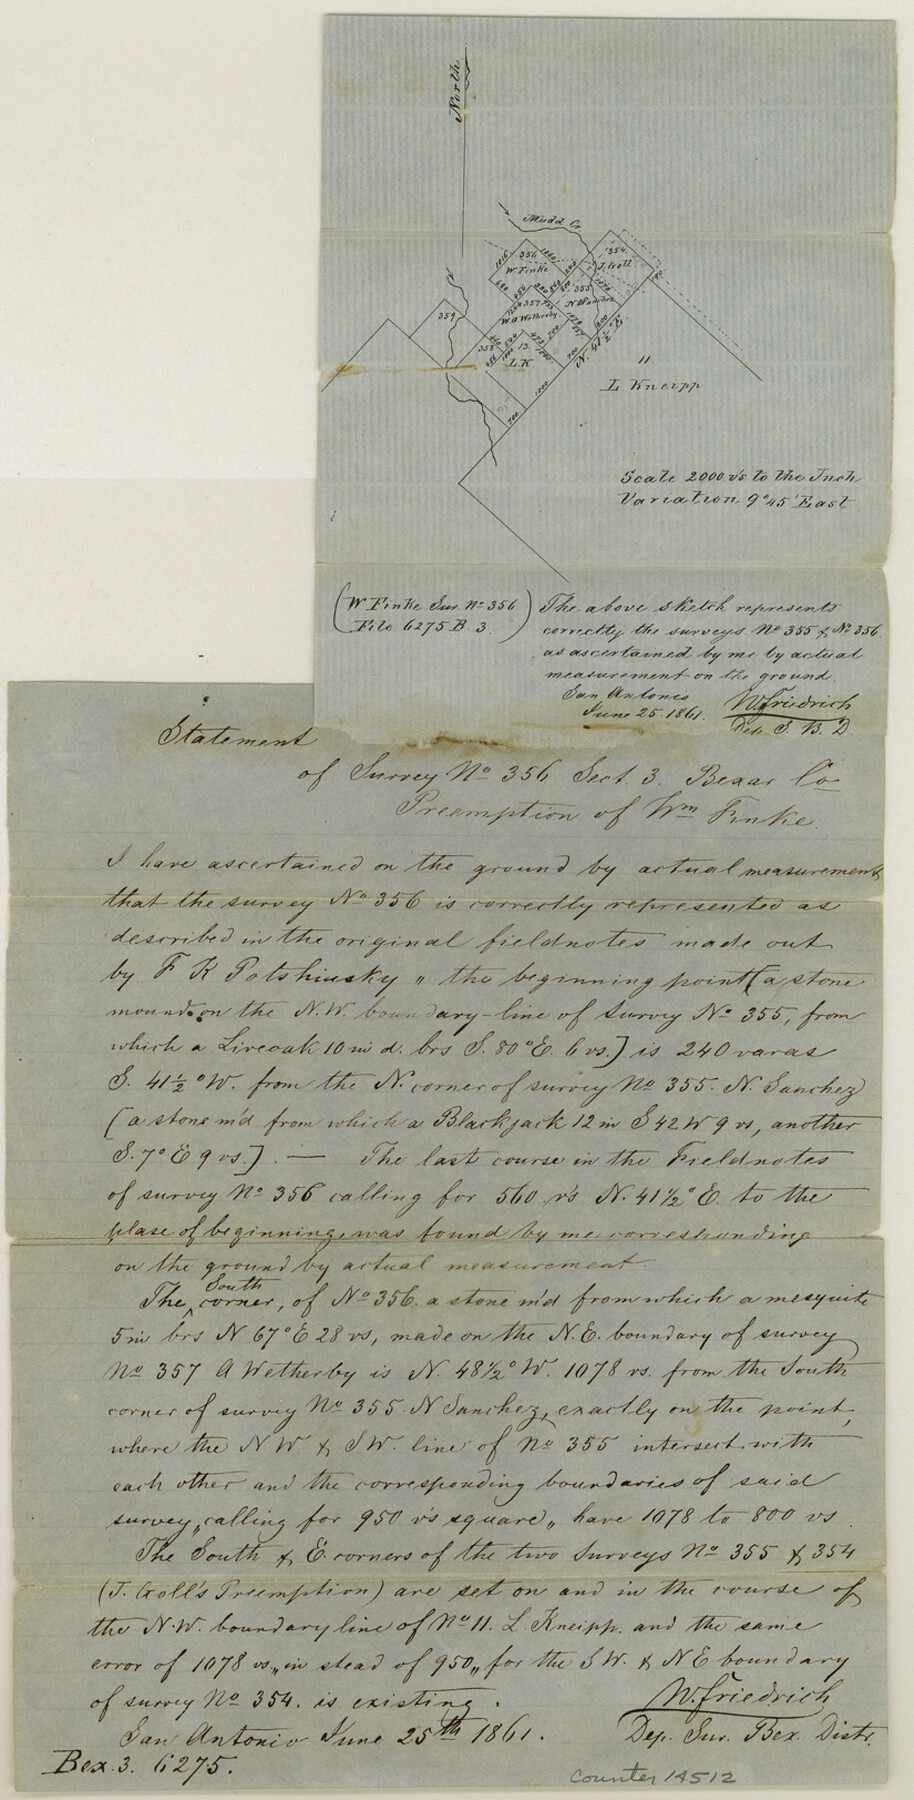 North
Mudd Cr
356
W Finke
354
J. Goll
355
N Sanchez
357
W. A Wetherby
359
358
13
L. K.
N. 41½° E.
11
L Kneipp
700
1000
Scale 2000 vs to the Inch
Variation 9°45' East
(W Finke Sur. No 356
File 6275 B. 3.)
The above sketch represents
correctly the surveys No 355 & No 356
as ascertained by me by actual
measurement on the ground.
San Antonio
June 25 1861.
W. Friedrich
Dep. S. B. D
Statement
of Survey No 356 Sect. 3. Bexar Co
Preemption of Wm Finke.
I have ascertained on the ground by actual measurement
that the survey No 356 is correctly represented as
described in the original fieldnotes made out
by F K Potshiusky " the beginning point [a stone
mound on the N.W. boundary-line of survey No 355, from
which a Liveoak 10 in d. brs S. 80° E. 6 vs.] is 240 varas
S. 41½° W. from the N. corner of survey No 355. N. Sanchez
[a stone m'd from which a Blackjack 12 in S 42 W 9 vs, another
S. 7° E 9 vs.]. — The last course in the Fieldnotes
of survey No 356 calling for 560 vs N. 41½° E. to the
plase of beginning, was found by me corresponding
on the ground by actual measurement.
The South corner, of No 356. a stone m'd from which a mesquite
5 in brs N 67° E 28 vs, made on the N.E. boundary of survey
No 357 A Wetherby is N. 48½° W. 1078 vs. from the South
corner of survey No 355 N Sanchez, exactly on the point,
where the N W & S W. line of No 355 intersect with
each other and the corresponding boundaries of said
survey „calling for 950 vs square„ have 1078 to 800 vs.
The South & E. corners of the two Surveys No 355 & 354
(J. Goll's Preemption) are set on and in the course of
the N.W. boundary line of No 11. L. Kneipp. and the same
error of 1078 vs „in stead of 950„ for the S W. & N E boundary
of survey No 354. is existing.
W. Friedrich
San Antonio June 25th 1861.
Dep. Sur. Bex. Distr.
Bex. 3. 6275.
counter 14512